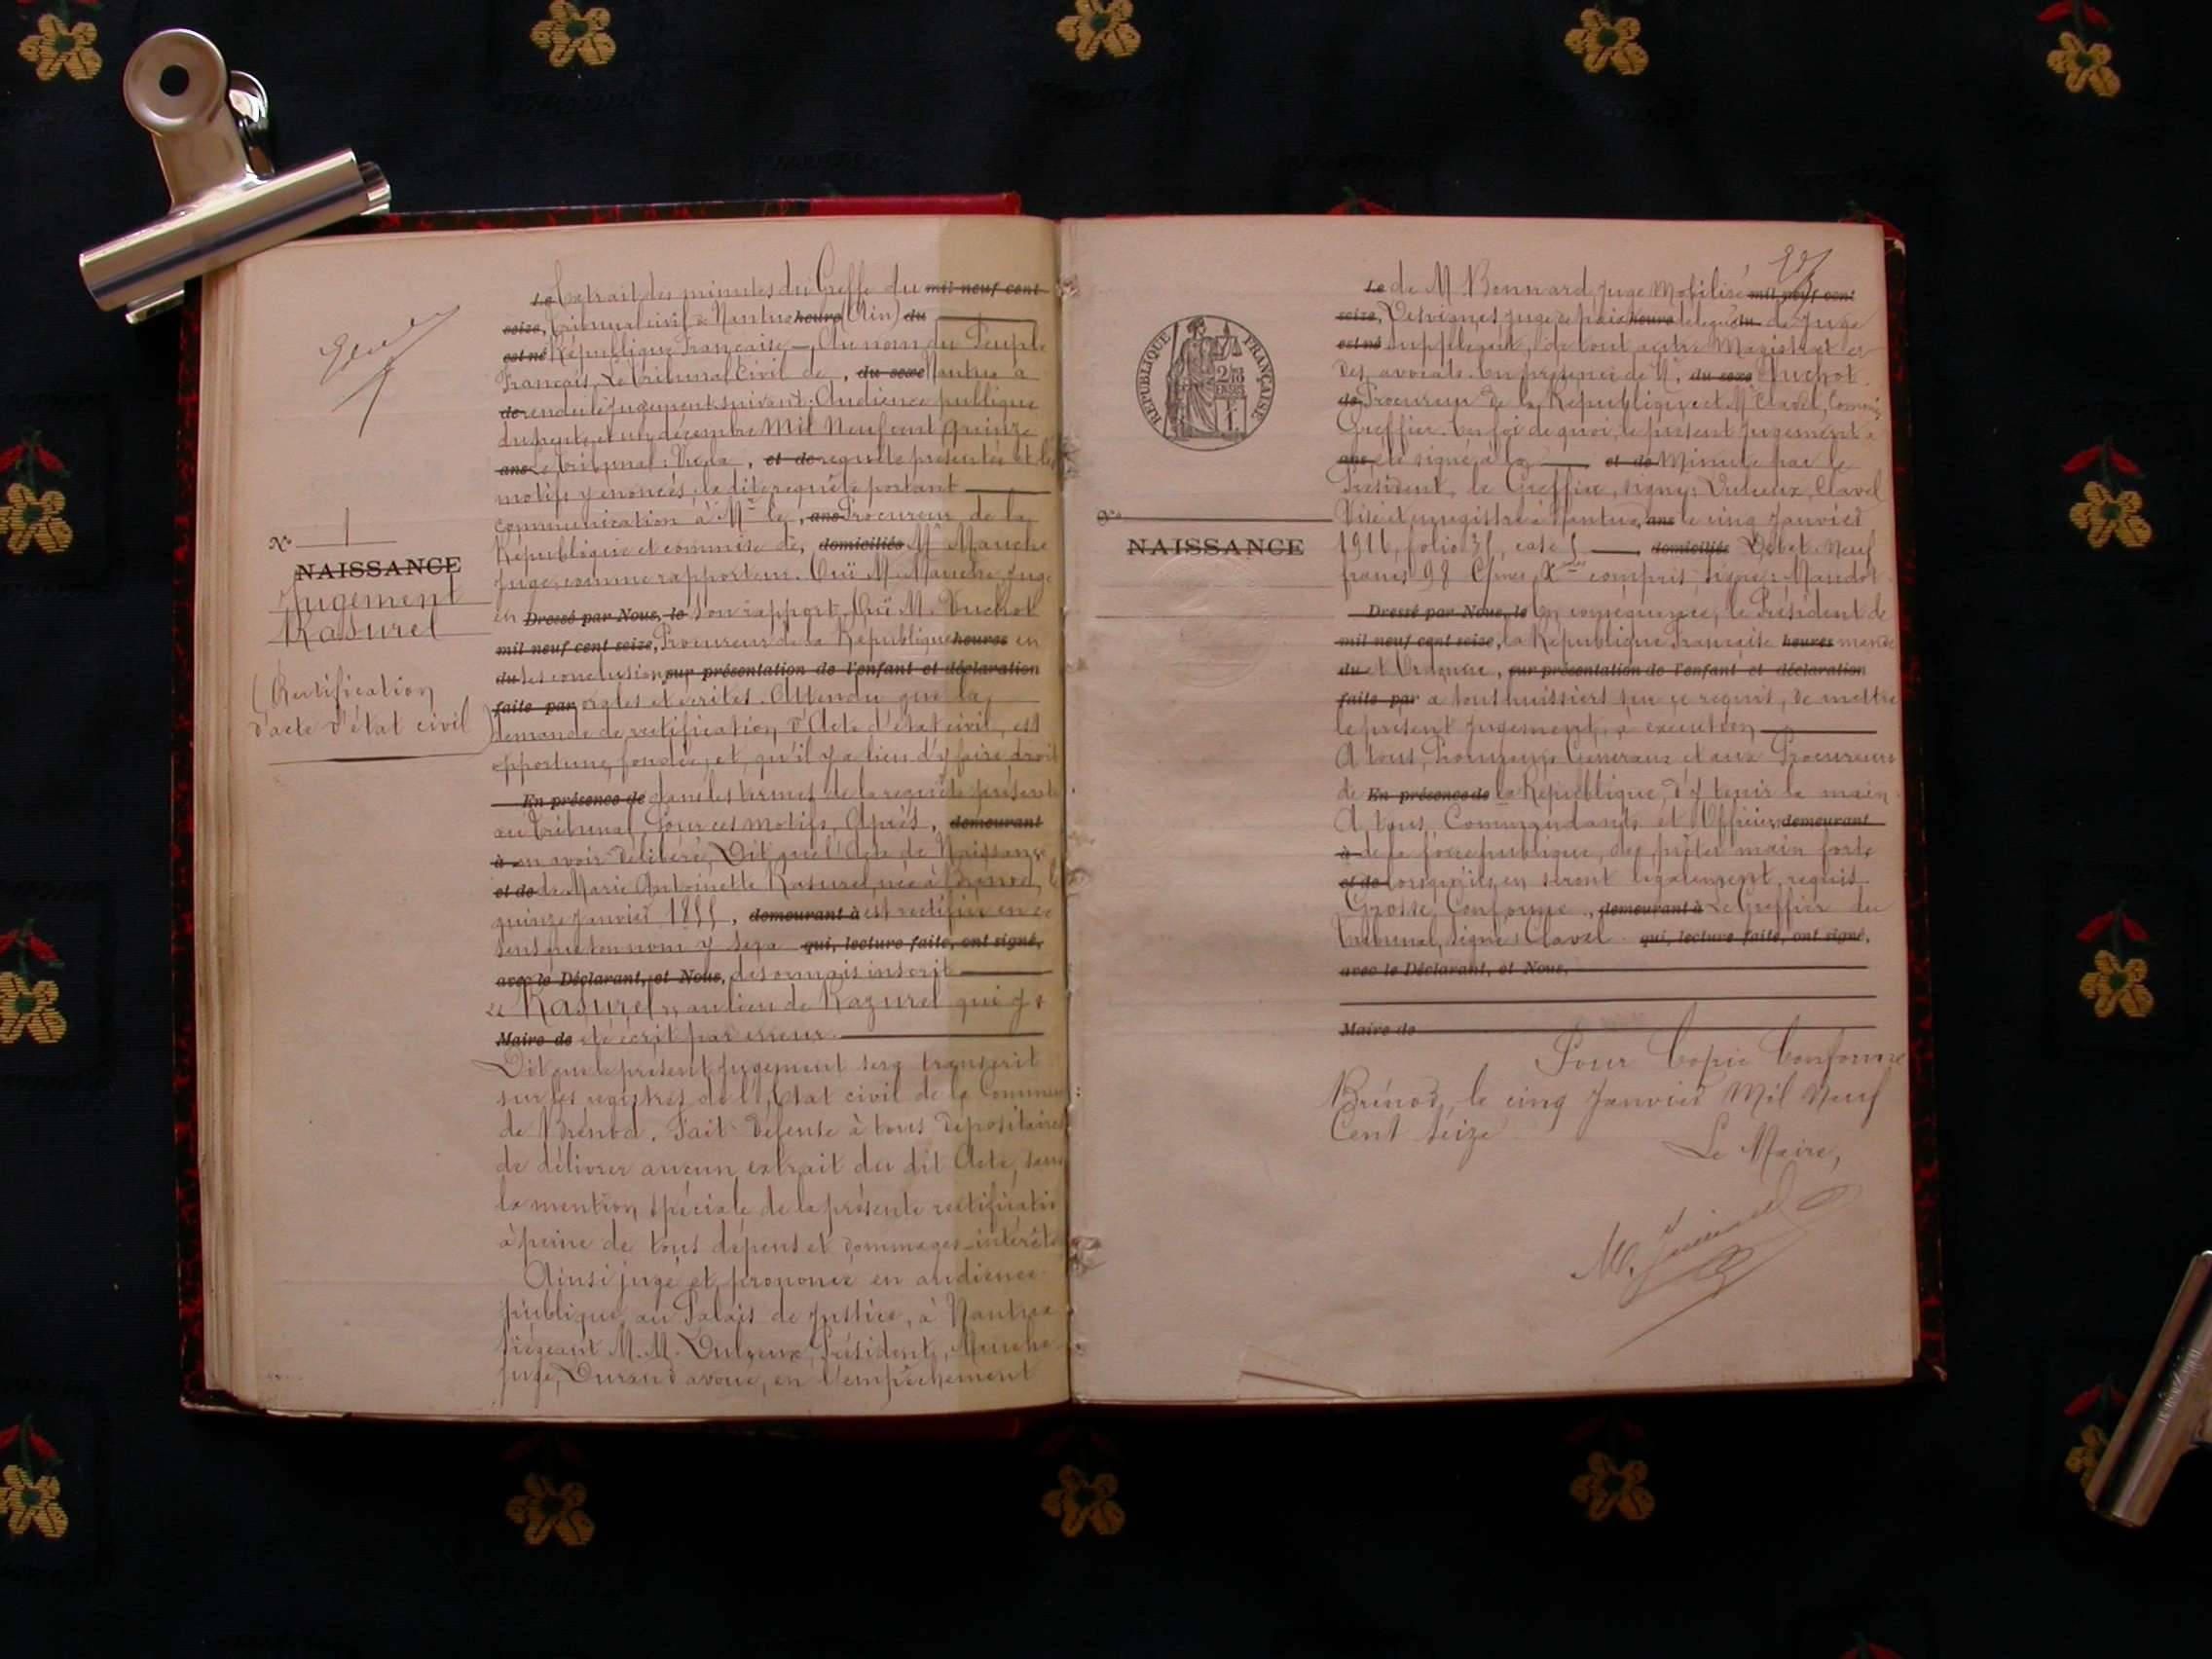 N° 1
NAISSANCE
Jugement
Rasurel
(Rectification
d'acte d'état civil)
Le Extrait des minutes du Greffe du mil neuf cent
seize, Tribunal civil de Nantua heure (Ain) du
est né République Française — Au nom du Peuple
Français, Le Tribunal Civil de, du sexe Nantua a
de rendu le jugement suivant: Audience publique
du trente et un décembre Mil Neuf cent quinze
ans Le Tribunal: Vu la, et de requête présentée et les
motifs y énoncés; la dite requête portant
communication à Mr le, ans Procureur de la
République et commise de, domiciliés Mr Mauche
Juge comme rapporteur. Ouï M. Mauche, juge
en Dressé par Nous, le son rapport, Ouï M. Duchot
mil neuf cent seize, Procureur de la République heures en
du ses conclusions sur présentation de l'enfant et déclaration
faite par orales et écrites. Attendu que la
demande de rectification d'Acte d'état civil, est
opportune, fondée, et qu'il y a lieu d'y faire droit
En présence de dans les termes de la requête présentée
au Tribunal, Pour ces motifs, Après, demeurant
à en avoir délibéré, Dit que l'Acte de Naissance
et de de Marie Antoinette Rasurel, née à Brénod, le
quinze janvier 1855, demeurant à est rectifier en ce
sens que son nom y sera qui, lecture faite, ont signé,
avec le Déclarant, et Nous, désormais inscrit
" Rasurel ", au lieu de Razurel qui y a
Maire de été écrit par erreur.
Dit que le présent jugement sera transcrit
sur les registres de l'Etat civil de la Commune
de Brénod. Fait défense à tous dépositaires
de délivrer aucun extrait du dit Acte, sans
la mention spéciale de la présente rectification
à peine de tous dépens et dommages-intérêts
Ainsi jugé et prononcé en audience
publique, au Palais de Justice, à Nantua
Siégeant M.M. Duleux, Président, Mauche
juge, Durand avoué, en l'empêchement
RÉPUBLIQUE FRANÇAISE
N°
NAISSANCE
Le de M. Bonnard, juge Mobilisé mil neuf cent
seize, juge de paix heure délégué du de Juge
est né suppléant, de tout autre Magistrat et
des avocats. En présence de M. du sexe Duchot
de Procureur de la République et Mr Clavel, Commis
Greffier. En foi de quoi, le présent jugement a
ans été signé à la et de Minute par le
Président, le Greffier, signé: Duleux, Clavel
Visé et enregistré à Nantua, ans le cinq Janvier
1916, folio 35, case 5, domiciliés Débet Neuf
francs 98 compris signé: Maudot
Dressé par Nous, le En conséquence, le Président de
mil neuf cent seize, la République Française heures mande
du et Ordonne, sur présentation de l'enfant et déclaration
faite par à tous huissiers sur ce requis, de mettre
le présent jugement, à exécution
A tous, Procureurs Généraux et aux Procureurs
de En présence de la République, d'y tenir la main.
A tous Commandants et Officiers demeurant
à de la force publique, de prêter main forte
et de lorsqu'ils en seront légalement requis
Grosse Conforme, demeurant à Le Greffier du
Tribunal, signé: Clavel. qui, lecture faite, ont signé,
avec le Déclarant, et Nous,
Maire de
Pour Copie Conforme
Brénod, le cinq Janvier Mil Neuf
Cent seize
Le Maire,